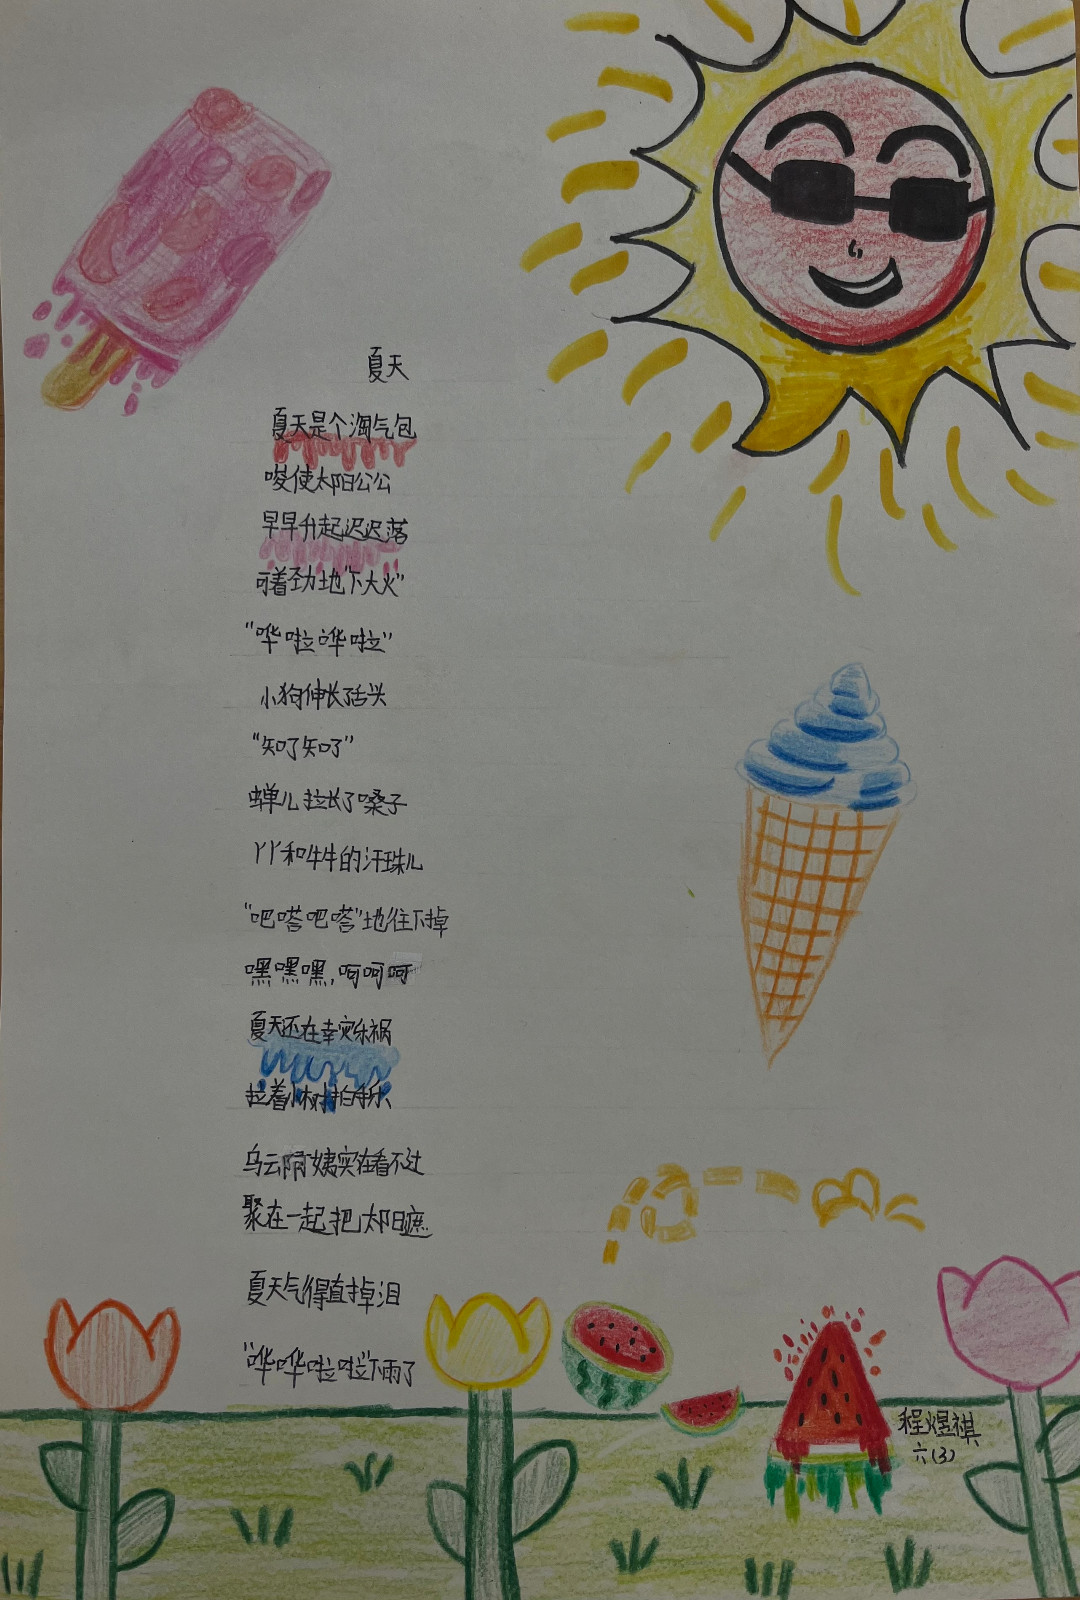 夏天
夏天是个淘气包
唆使太阳公公
早早升起迟迟落
可着劲地“下大火”
“哗啦哗啦”
小狗伸长了舌头
“知了知了”
蝉儿拉长了嗓子
丫丫和牛牛的汗珠儿
“吧嗒吧嗒”地往下掉
嘿嘿嘿，呵呵呵
夏天还在幸灾乐祸
拉着小树拍手乐
乌云阿姨实在看不过
聚在一起把太阳遮
夏天气得直掉泪
“哗哗啦啦”下雨了
程煜祺
六(3)